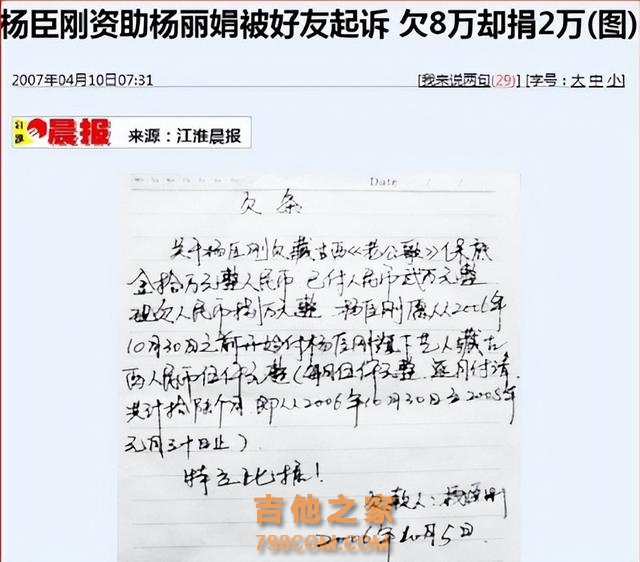 杨臣刚资助杨丽娟被好友起诉 欠8万却捐2万(图)
2007年04月10日07:31 [我来说两句(29)] [字号：大 中 小]
江淮晨报 来源：江淮晨报
Date / /
欠条
关于杨臣刚欠藏古西《老公歌》保底
金拾万元整人民币 已付人民币贰万元整
现欠人民币捌万元整 杨臣刚愿从2006年
10月30日之前开始付杨臣刚旗下艺人藏古
西人民币伍仟元整(每月伍仟元整 逐月付清
共计拾陆个月 即从2006年10月30日至2008年
元月三十日止)
特立此据！
欠款人：杨臣刚
2006年10月5日
吉他之家
798COM.COM